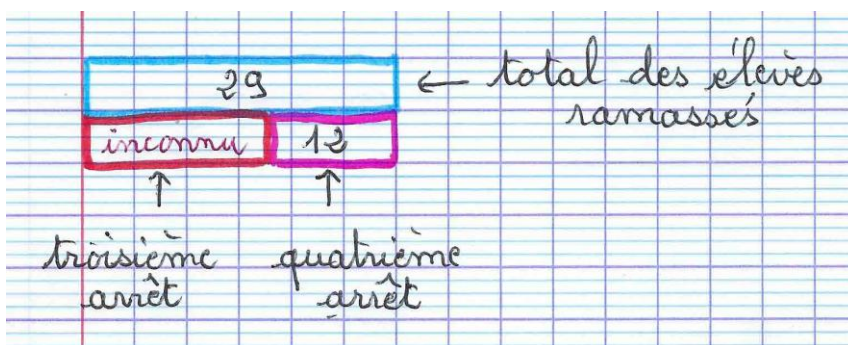 29
← total des élèves
ramassés
inconnu 12
↑ ↑
troisième quatrième
arrêt arrêt